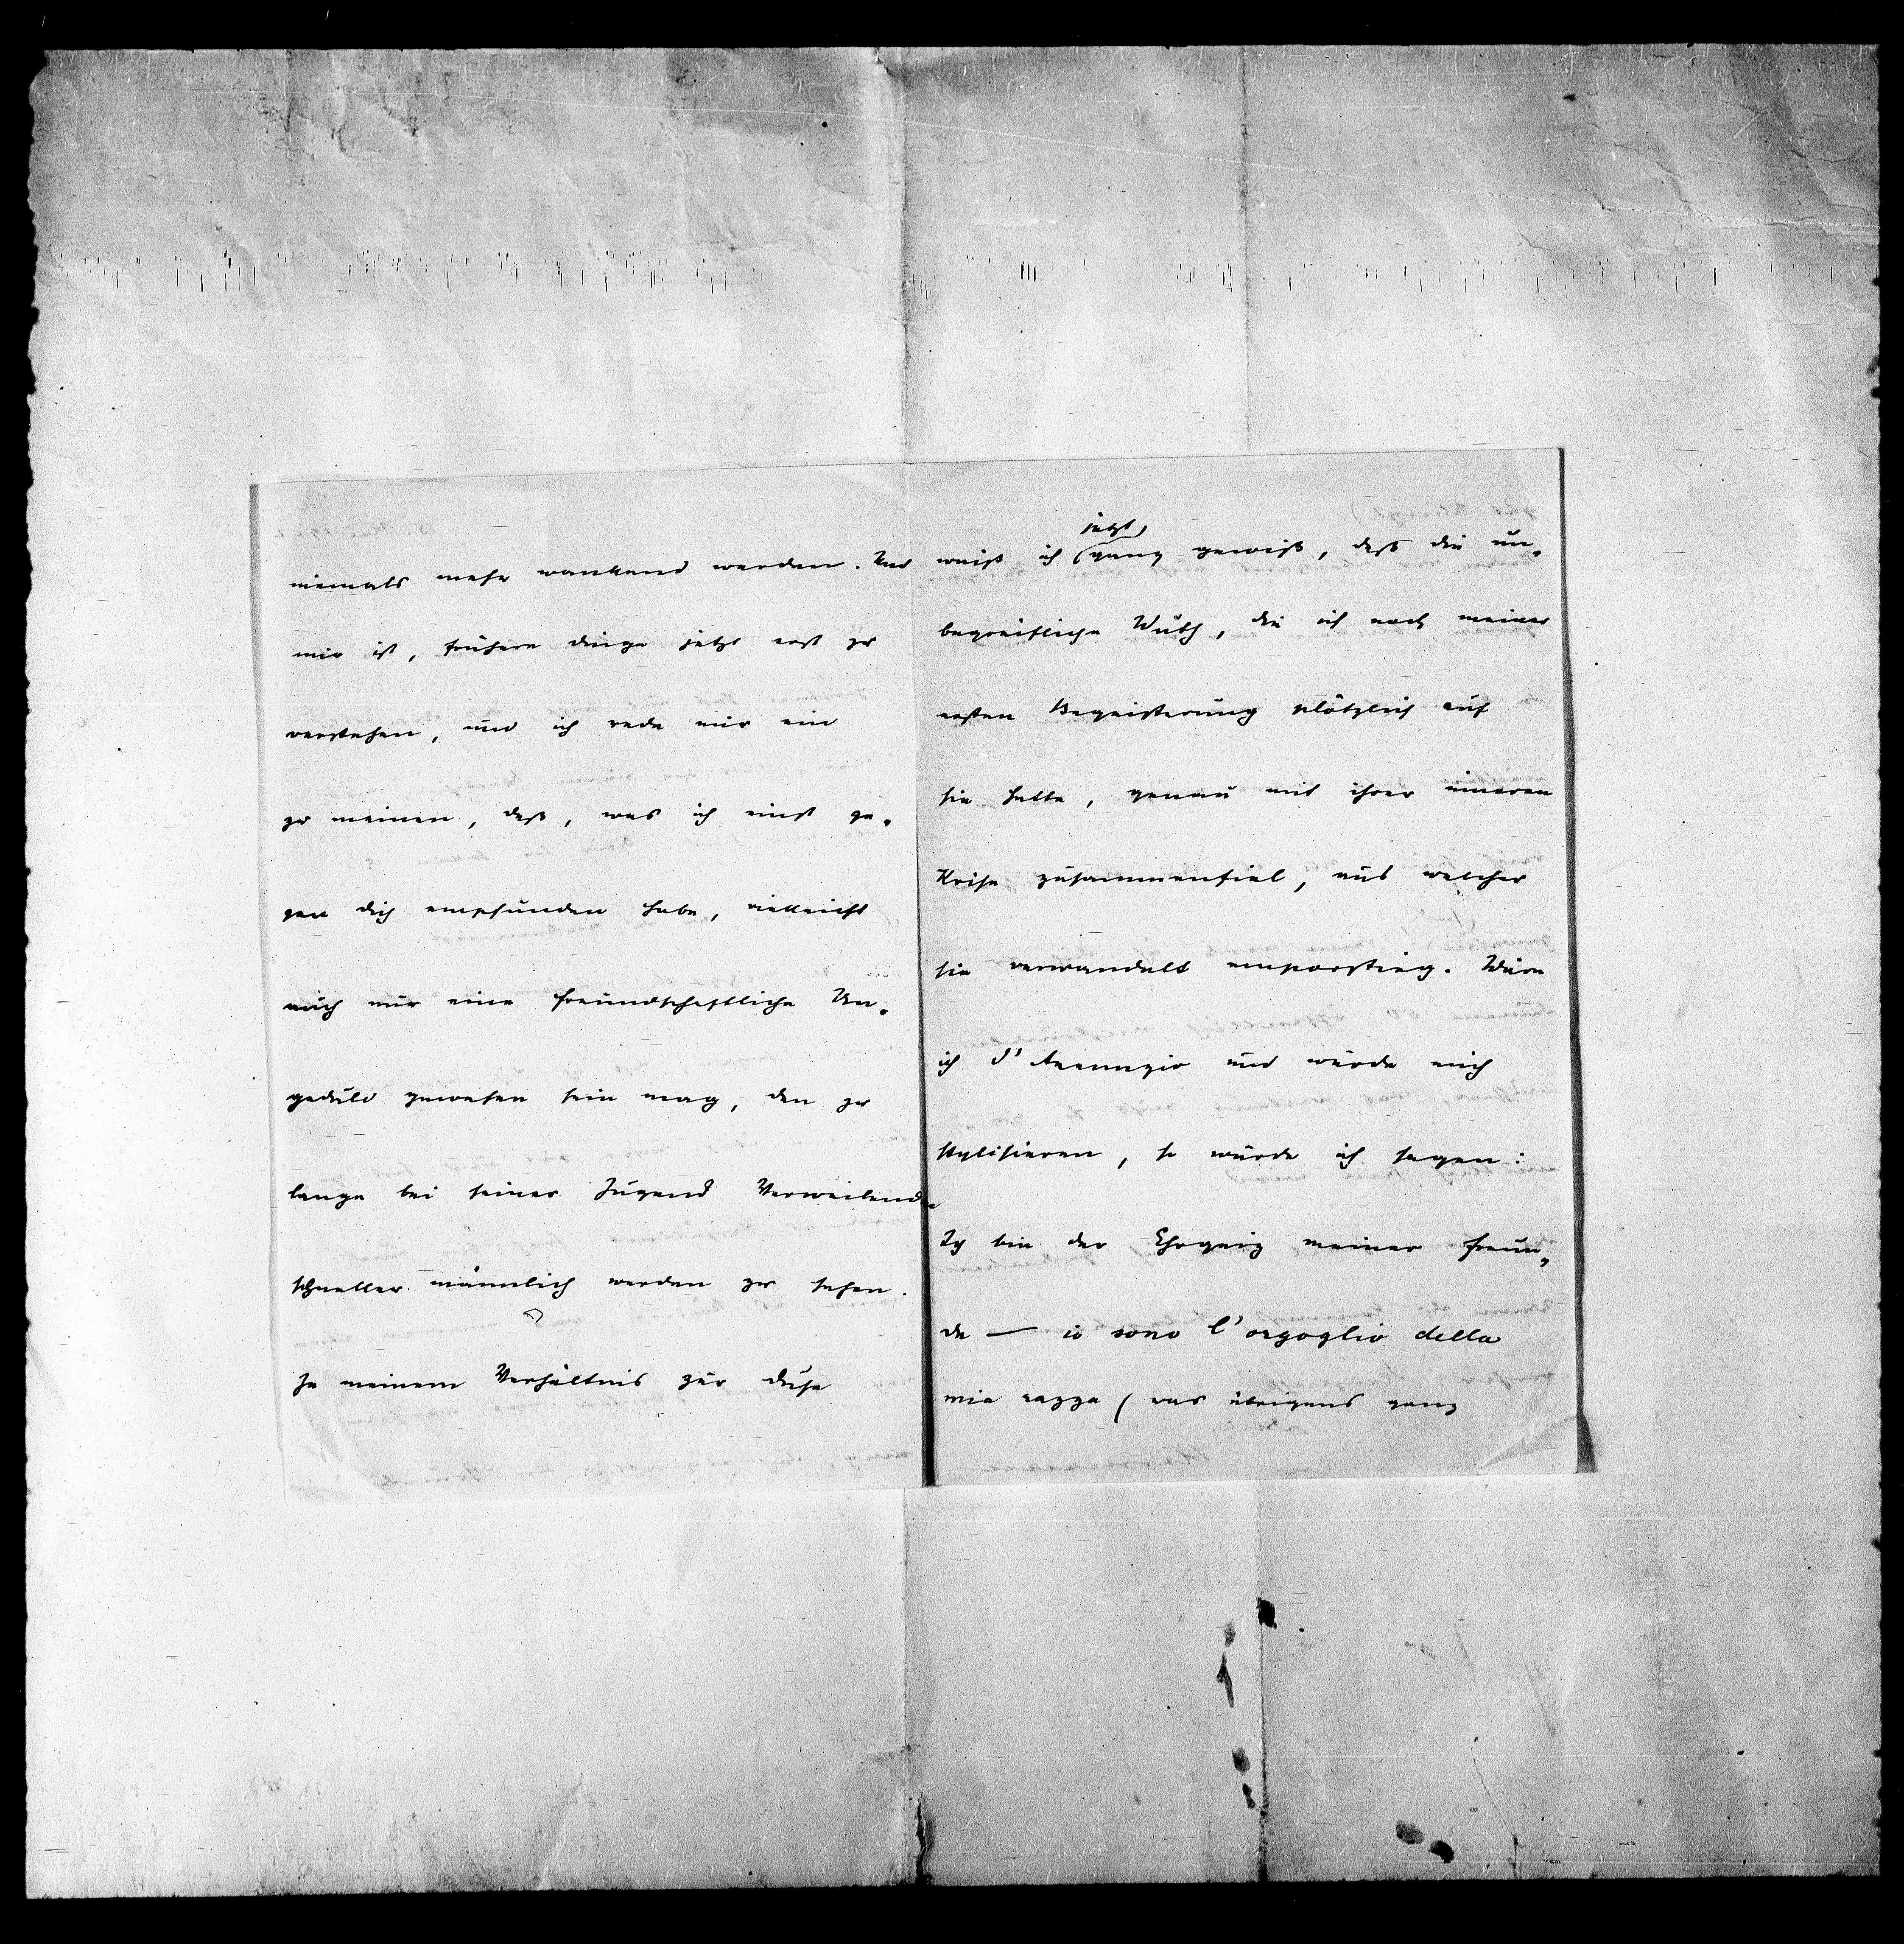 niemals mehr wankend werden. Und
mir ist, frühere Dinge jetzt erst zu
verstehen, und ich rede mir ein
zu meinen, daß, was ich einst ge-
gen dich empfunden habe, vielleicht
auch nur eine freundschaftliche Un-
geduld gewesen sein mag, den zu
lange bei seiner Jugend Verweilenden
schneller männlich werden zu sehen.
In meinem Verhältnis zur Duse
weiß ich jetzt ganz gewiß, daß die un-
begreifliche Wuth, die ich nach meiner
ersten Begeisterung plötzlich auf
sie hatte, genau mit ihrer inneren
Krise zusammenfiel, aus welcher
sie verwandelt emporstieg. Wäre
ich d'Annunzio und würde mich
stylisieren, so würde ich sagen:
Ich bin der Ehrgeiz meiner Freun-
de — io sono l'orgoglio della
mia razza (was übrigens ganz